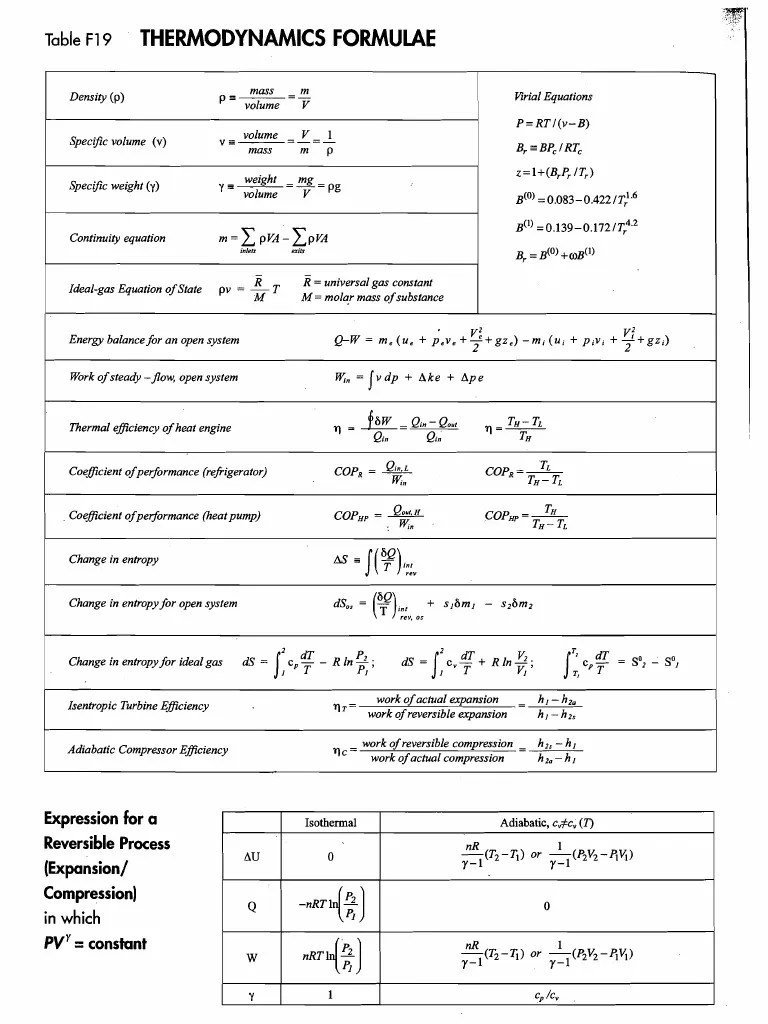 Table F19 THERMODYNAMICS FORMULAE
Density (ρ) ρ ≡ mass / volume = m / V
Specific volume (v) v ≡ volume / mass = V / m = 1 / ρ
Specific weight (γ) γ ≡ weight / volume = mg / V = ρg
Continuity equation m = ∑ ρVA – ∑ ρVA
inlets exits
Ideal-gas Equation of State ρv = R̄ / M T R̄ = universal gas constant
M = molar mass of substance
Virial Equations
P = RT / (v – B)
Br ≡ BPc / RTc
z = 1 + (BrPr / Tr)
B(0) = 0.083 – 0.422 / Tr^1.6
B(1) = 0.139 – 0.172 / Tr^4.2
Br = B(0) + ωB(1)
Energy balance for an open system Q–W = me (ue + peve + Ve² / 2 + gze) – mi (ui + pivi + Vi² / 2 + gzi)
Work of steady – flow, open system Win = ∫ v dp + Δke + Δpe
Thermal efficiency of heat engine η = ∮δW / Qin = Qin – Qout / Qin η = TH – TL / TH
Coefficient of performance (refrigerator) COPR = Qin, L / Win COPR = TL / TH – TL
Coefficient of performance (heat pump) COPHP = Qout, H / Win COPHP = TH / TH – TL
Change in entropy ΔS ≡ ∫ (δQ / T) int rev
Change in entropy for open system dSos = (δQ / T) int rev, os + s1δm1 – s2δm2
Change in entropy for ideal gas dS = ∫₁² cp dT / T – R ln P2 / P1 ; dS = ∫₁² cv dT / T + R ln V2 / V1 ; ∫ cp dT / T = S⁰2 – S⁰1
Isentropic Turbine Efficiency ηT = work of actual expansion / work of reversible expansion = h1 – h2a / h1 – h2s
Adiabatic Compressor Efficiency ηC = work of reversible compression / work of actual compression = h2s – h1 / h2a – h1
Expression for a
Reversible Process
(Expansion/
Compression)
in which
PVᵞ = constant
Isothermal Adiabatic, cv≠cv (T)
ΔU 0 nR / γ–1 (T2 – T1) or 1 / γ–1 (P2V2 – P1V1)
Q –nRT ln(P2 / P1) 0
W nRT ln(P2 / P1) nR / γ–1 (T2 – T1) or 1 / γ–1 (P2V2 – P1V1)
γ 1 cp /cv